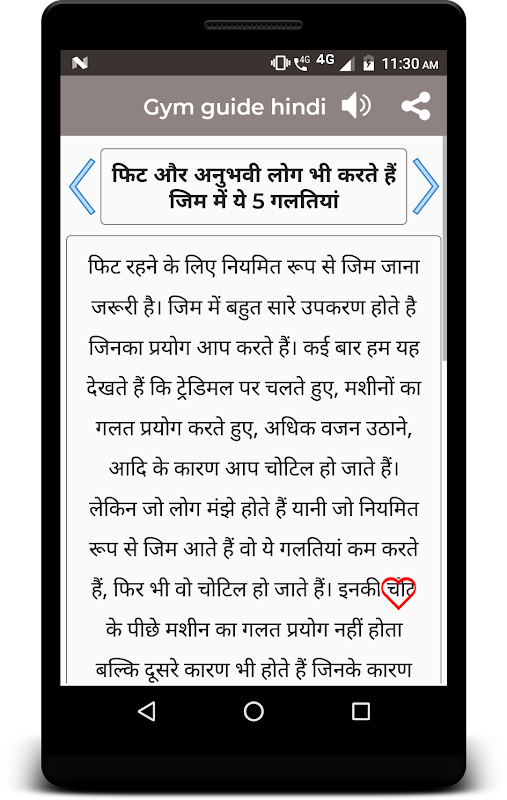 4G 4G 11:30 AM
Gym guide hindi
फिट और अनुभवी लोग भी करते हैं
जिम में ये 5 गलतियां
फिट रहने के लिए नियमित रूप से जिम जाना
जरूरी है। जिम में बहुत सारे उपकरण होते है
जिनका प्रयोग आप करते हैं। कई बार हम यह
देखते हैं कि ट्रेडिमल पर चलते हुए, मशीनों का
गलत प्रयोग करते हुए, अधिक वजन उठाने,
आदि के कारण आप चोटिल हो जाते हैं।
लेकिन जो लोग मंझे होते हैं यानी जो नियमित
रूप से जिम आते हैं वो ये गलतियां कम करते
हैं, फिर भी वो चोटिल हो जाते हैं। इनकी चोट
के पीछे मशीन का गलत प्रयोग नहीं होता
बल्कि दूसरे कारण भी होते हैं जिनके कारण